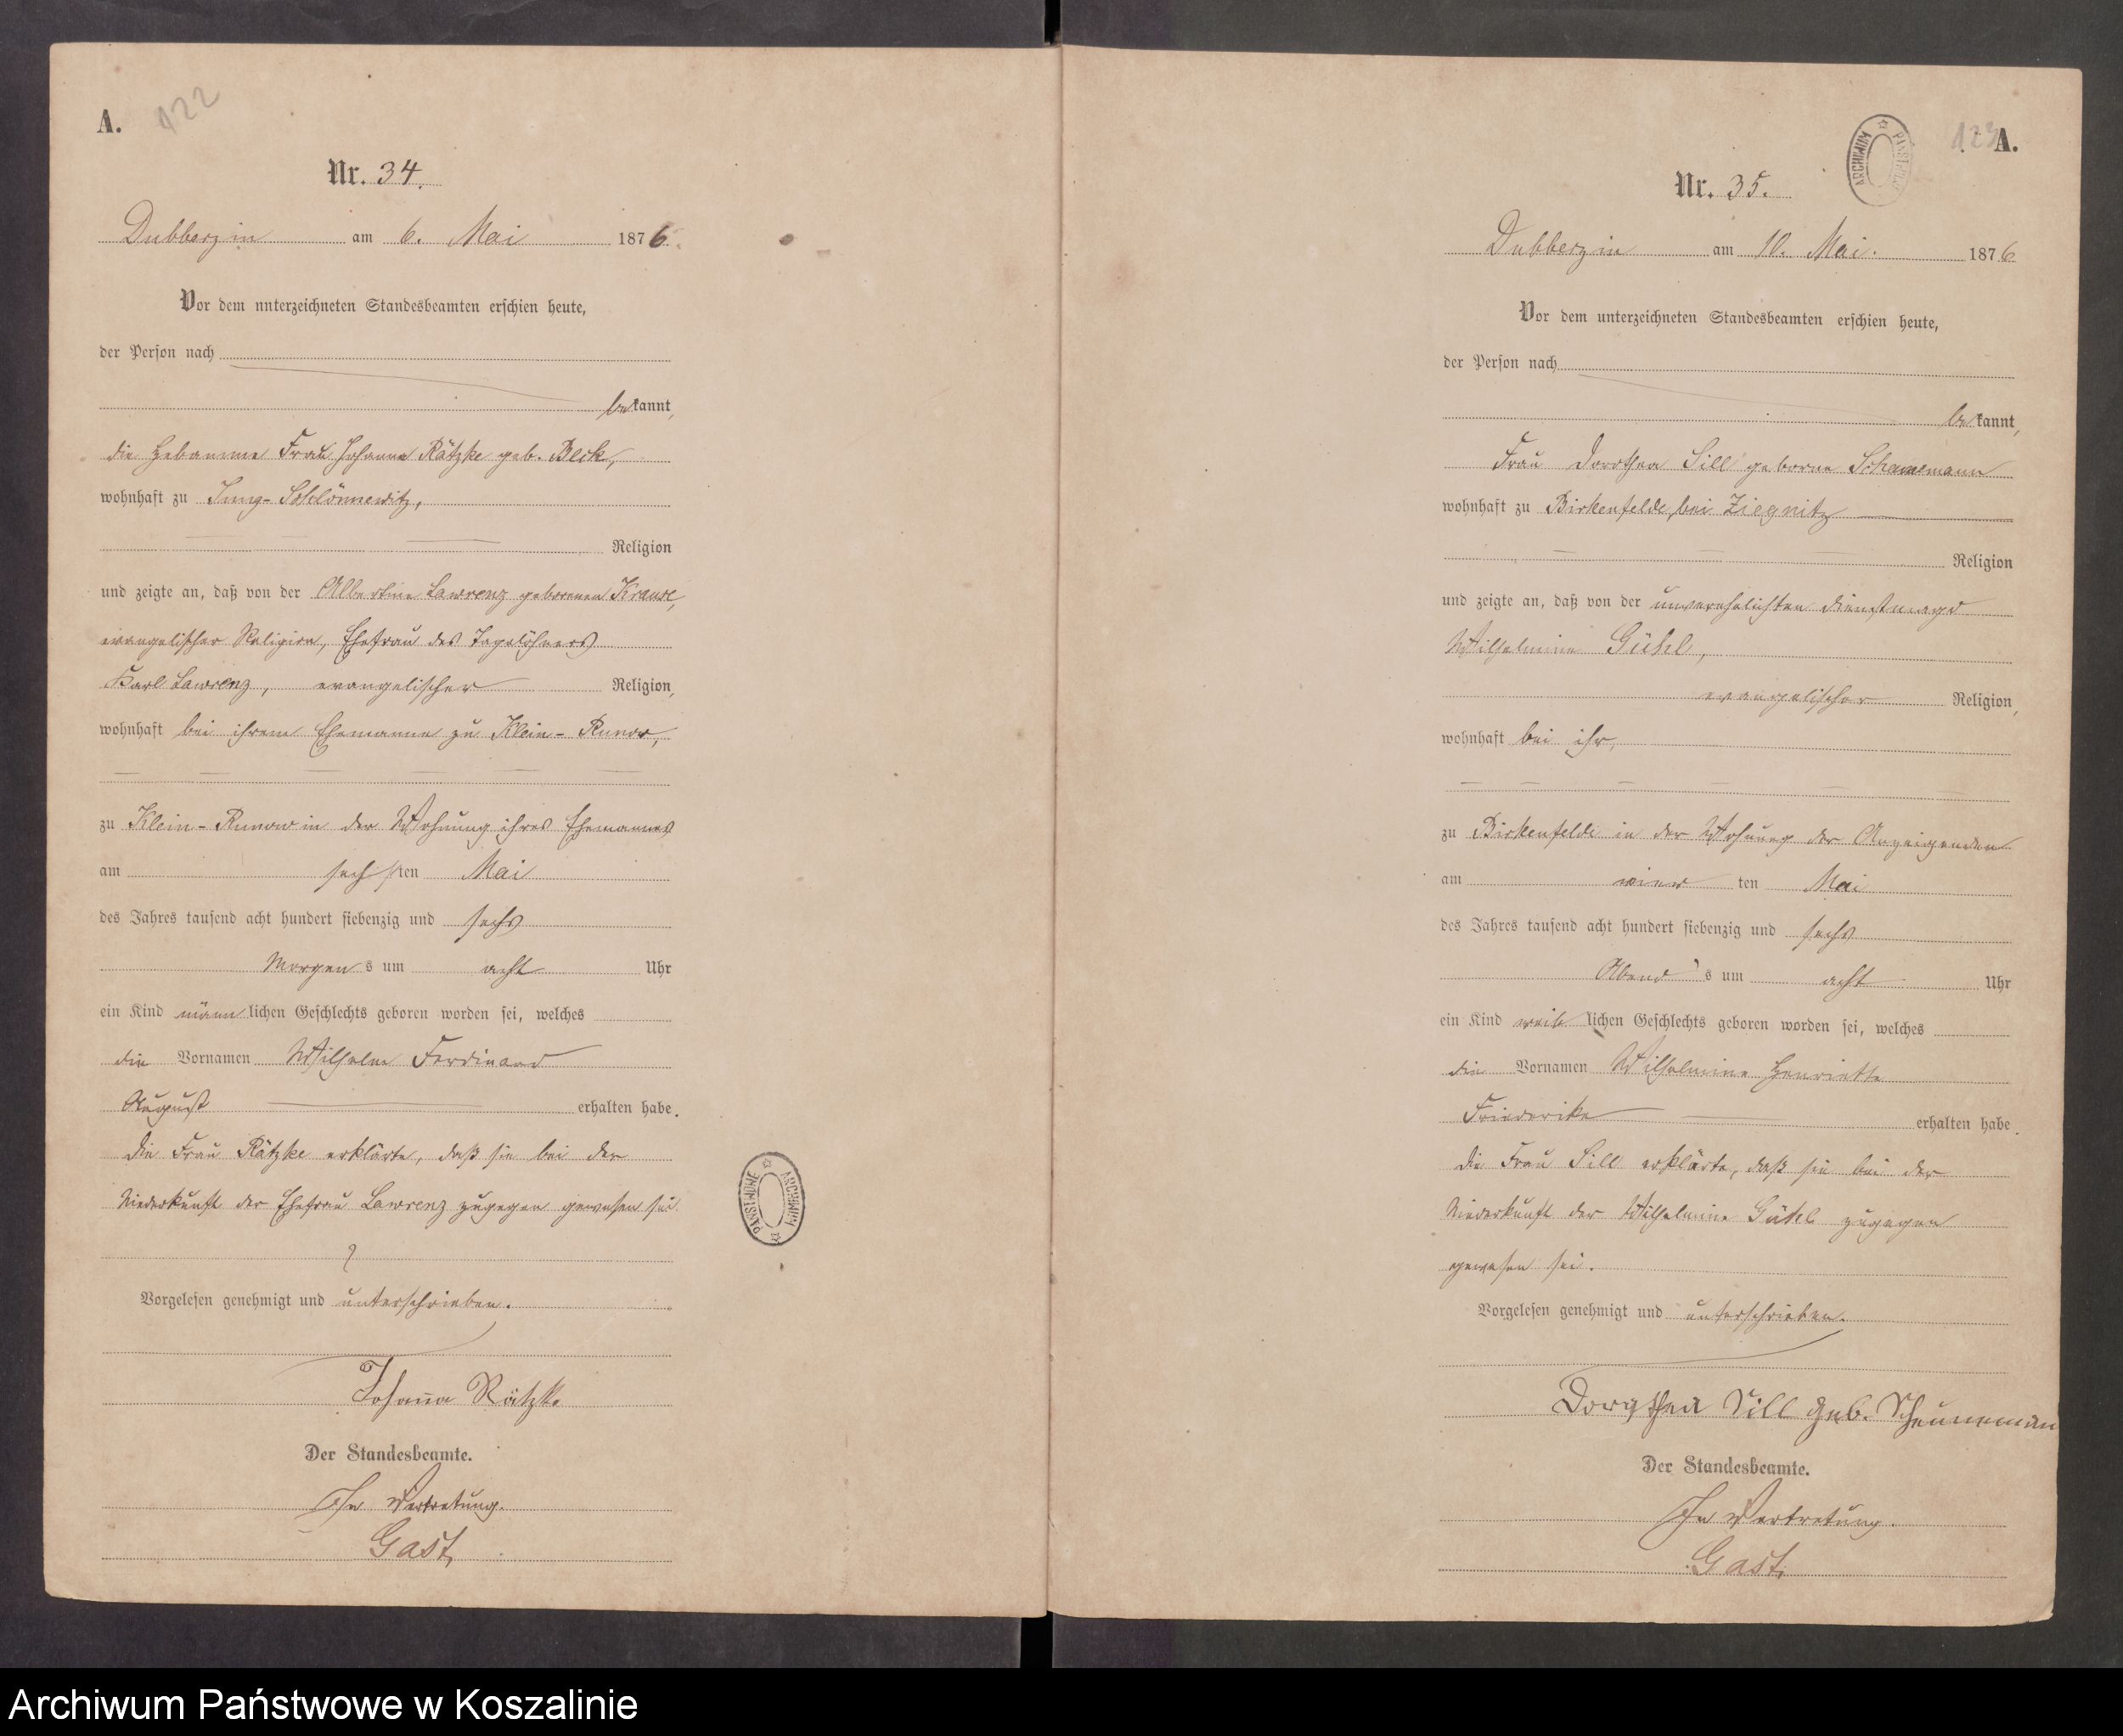 A. 122
Nr. 34.
Dubberzin am 6. Mai 1876.
Vor dem unterzeichneten Standesbeamten erschien heute,
der Person nach
bekannt,
die Hebamme Frau Johanna Rätzke geb. Beck,
wohnhaft zu Jung-Schlönnewitz,
Religion
und zeigte an, daß von der Albertine Lawrenz geborenen Krause,
evangelischer Religion, Ehefrau des Tagelöhners
Karl Lawrenz, evangelischer Religion,
wohnhaft bei ihrem Ehemanne zu Klein-Runow,
zu Klein-Runow in der Wohnung ihres Ehemannes
am sechsten Mai
des Jahres tausend acht hundert siebenzig und sechs
Morgens um acht Uhr
ein Kind männlichen Geschlechts geboren worden sei, welches
die Vornamen Wilhelm Ferdinand
August erhalten habe.
Die Frau Rätzke erklärte, daß sie bei der
Niederkunft der Ehefrau Lawrenz zugegen gewesen sei.
Vorgelesen genehmigt und unterschrieben.
Johanna Rätzke
Der Standesbeamte.
In Vertretung.
Gast.
ARCHIWUM PAŃSTWOWE
123 A.
ARCHIWUM
Nr. 35.
Dubberzin am 10. Mai. 1876
Vor dem unterzeichneten Standesbeamten erschien heute,
der Person nach
bekannt,
Frau Dorothea Sill geborne
wohnhaft zu Birkenfelde bei Ziegnitz
Religion
und zeigte an, daß von der unverehelichten Dienstmagd
Wilhelmine Gühl,
evangelischer Religion,
wohnhaft bei ihr,
zu Birkenfelde in der Wohnung der Anzeigenden
am vierten Mai
des Jahres tausend acht hundert siebenzig und sechs
Abends um acht Uhr
ein Kind weiblichen Geschlechts geboren worden sei, welches
die Vornamen Wilhelmine Henriette
Friederike erhalten habe.
Die Frau Sill erklärte, daß sie bei der
Niederkunft der Wilhelmine Gühl zugegen
gewesen sei.
Vorgelesen genehmigt und unterschrieben.
Dorothea Sill geb. Scheuneman
Der Standesbeamte.
In Vertretung.
Gast.
Archiwum Państwowe w Koszalinie